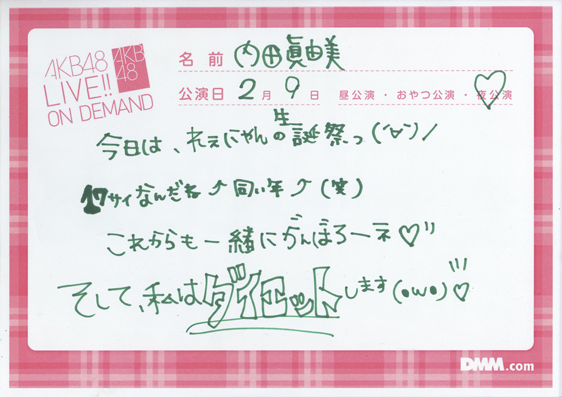 AKB48
LIVE!!
ON DEMAND
AKB
48
名前 内田眞由美
公演日 2月9日 昼公演・おやつ公演・夜公演
今日は、れぇにゃんの生誕祭っ(´∀`)ノ
17サイなんだね⤴同い年⤴(笑)
これからも一緒にがんばろーネ♡"
そして、私はダイエットします(・ω・)♡
DMM.com